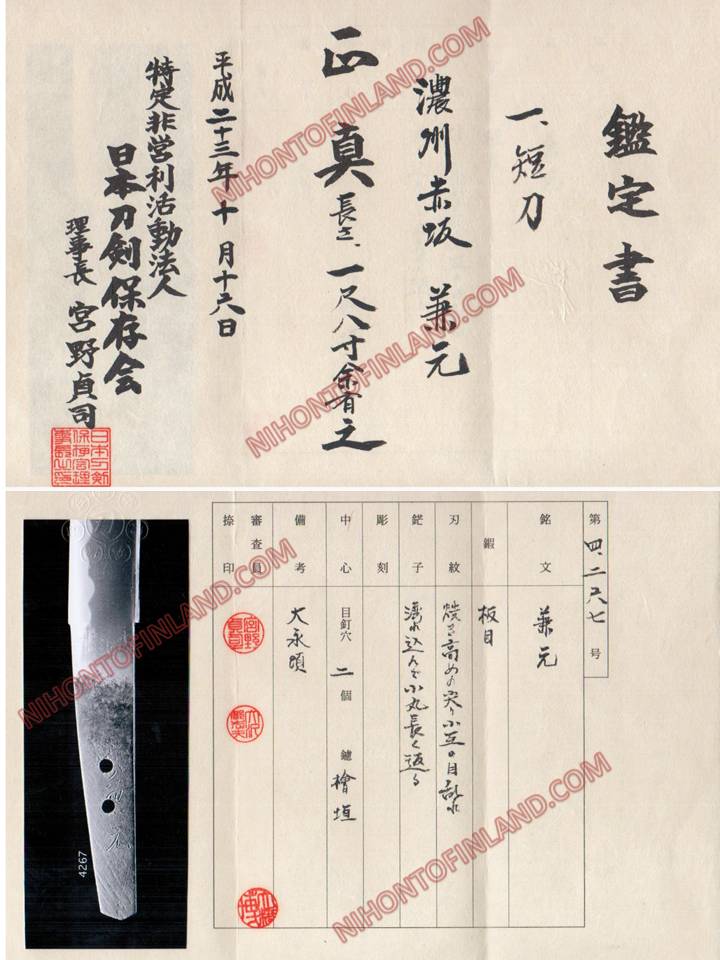 鑑定書
一、短刀
濃州赤坂 兼元
正真 長さ、一尺八寸余有之
平成二十三年十月十六日
特定非営利活動法人
日本刀剣保存会
理事長 宮野貞司
NIHONTOFINLAND.COM
NIHONTOFINLAND.COM
第 四、二六七 号
銘文 兼元
鍜 板目
刃紋 焼き高めの尖り小互の目乱れ
鋩子 湾れ込んで小丸長く返る
彫刻
中心 目釘穴 二個 鑢 檜垣
備考 大永頃
審査員
捺印
宮野貞司
兼元
4267
NIHONTOFINLAND.COM
NIHONTOFINLAND.COM